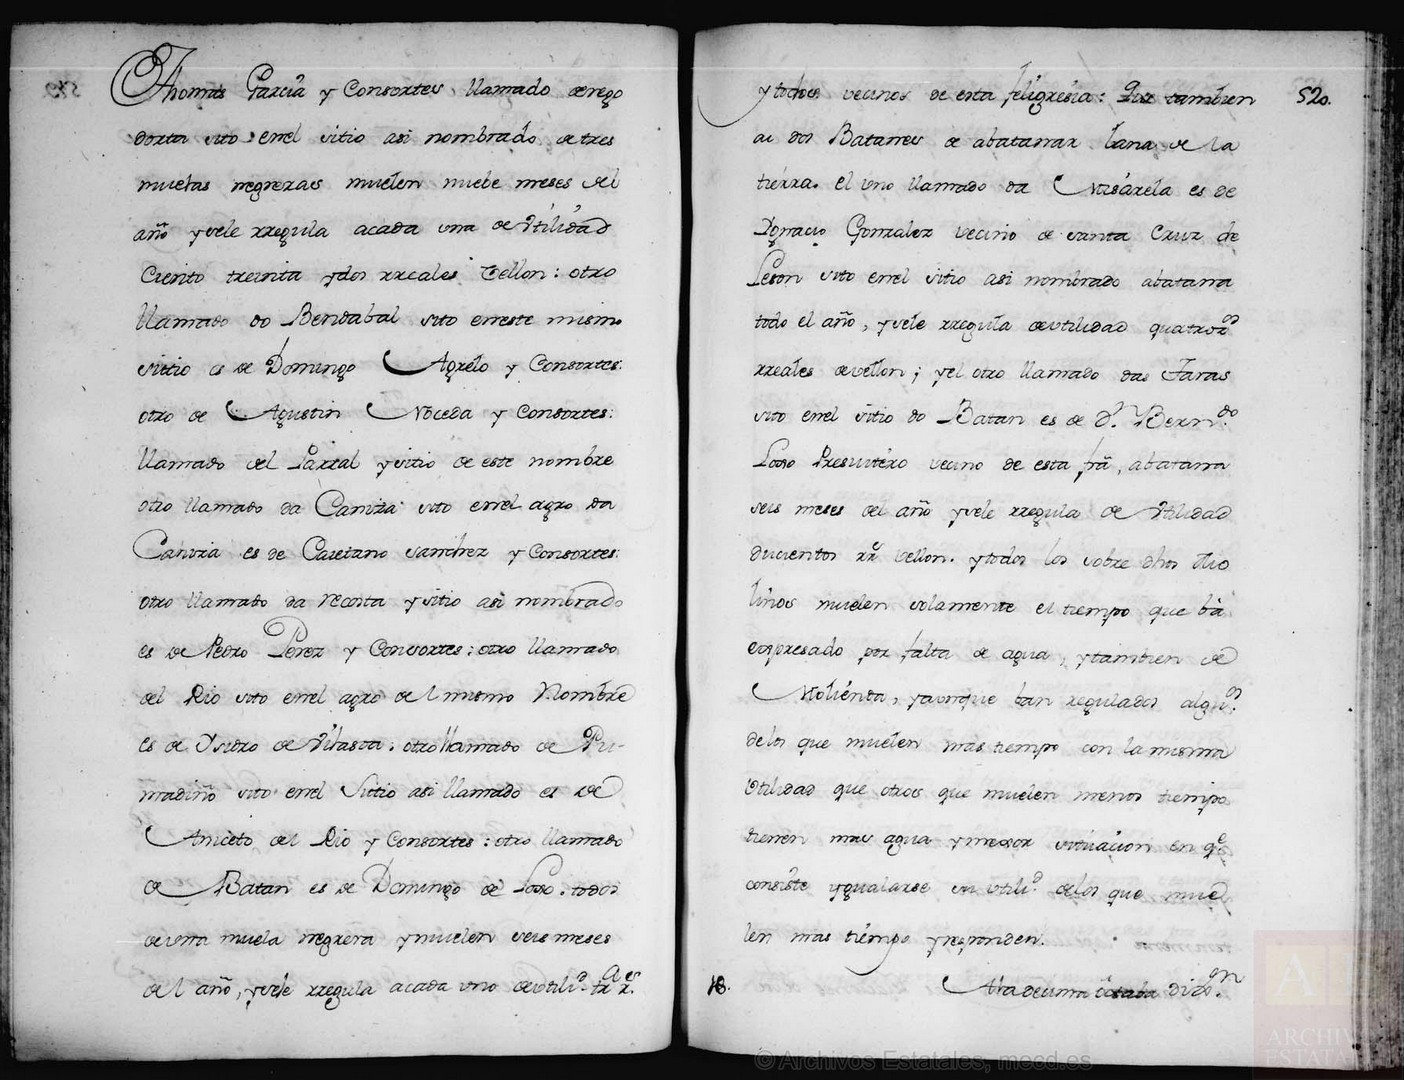 Thomas Garcia y Consortes, llamado de rego
dorta sito enel sitio asi nombrado, de tres
muelas negreras muelen nuebe meses del
año y sele rregula acada una de Utilidad
Ciento treinta y dos rreales Vellon: otro
llamado do Bendabal sito en este mismo
sitio es de Domingo Agrelo y Consortes:
otro de Agustin Noceda y Consortes:
llamado del Parral y sitio de este nombre
otro llamado da Caniza sito enel agro da
Caniza es de Caietano Sanchez y Consortes:
otro llamado da Recosta y sitio asi nombrado
es de Pedro Perez y Consortes: otro llamado
del Rio sito enel agro del mismo Nombre
es de Ysidro de Vilasta: otro llamado de Pu-
madiño sito enel Sitio asi llamado es de
Aniceto del Rio y Consortes: otro llamado
de Batan es de Domingo de Lodo. todos
de una muela negrera y muelen seis meses
del año, y sele rregula acada uno de utili.d
y todos vecinos de esta feligresia: Que tambien
520.
ai dos Batanes de abatanar lana de la
tierra. el uno llamado da Misarela es de
Ygnacio Gonzalez vecino de santa Cruz de
Leson sito enel sitio asi nombrado abatana
todo el año, y sele rregula de utilidad quatroz.os
rreales de vellon; y el otro llamado das Faras
sito enel sitio do Batan es de D.n Bern.do
Lodo Presvitero vecino de esta fra, abatana
seis meses del año y sele rregula de Utilidad
ducientos rr.s vellon. y todos los sobre dhos Mo
linos muelen solamente el tiempo que bà
expresado por falta de agua, y tambien de
Molienda, y aunque ban regulados algu.os
delos que muelen mas tiempo con la misma
Utilidad que otros que muelen menos tiempo
tienen mas agua y mejor situacion en q.e
consiste ygualarse su utili.d delos que mue
len mas tiempo y responden.
18.
Ala decima octaba Dix.on
© Archivos Estatales, mecd.es
ARCHIVOS
ESTATALES